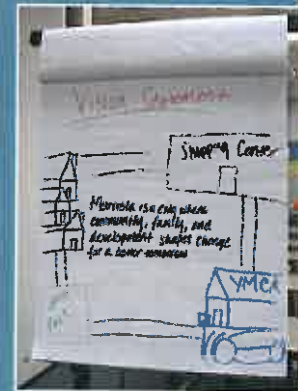 Vision Statement
Shopping Center
Murrieta is a city where
community, family, and
development shapes change
for a better tomorrow
YMCA